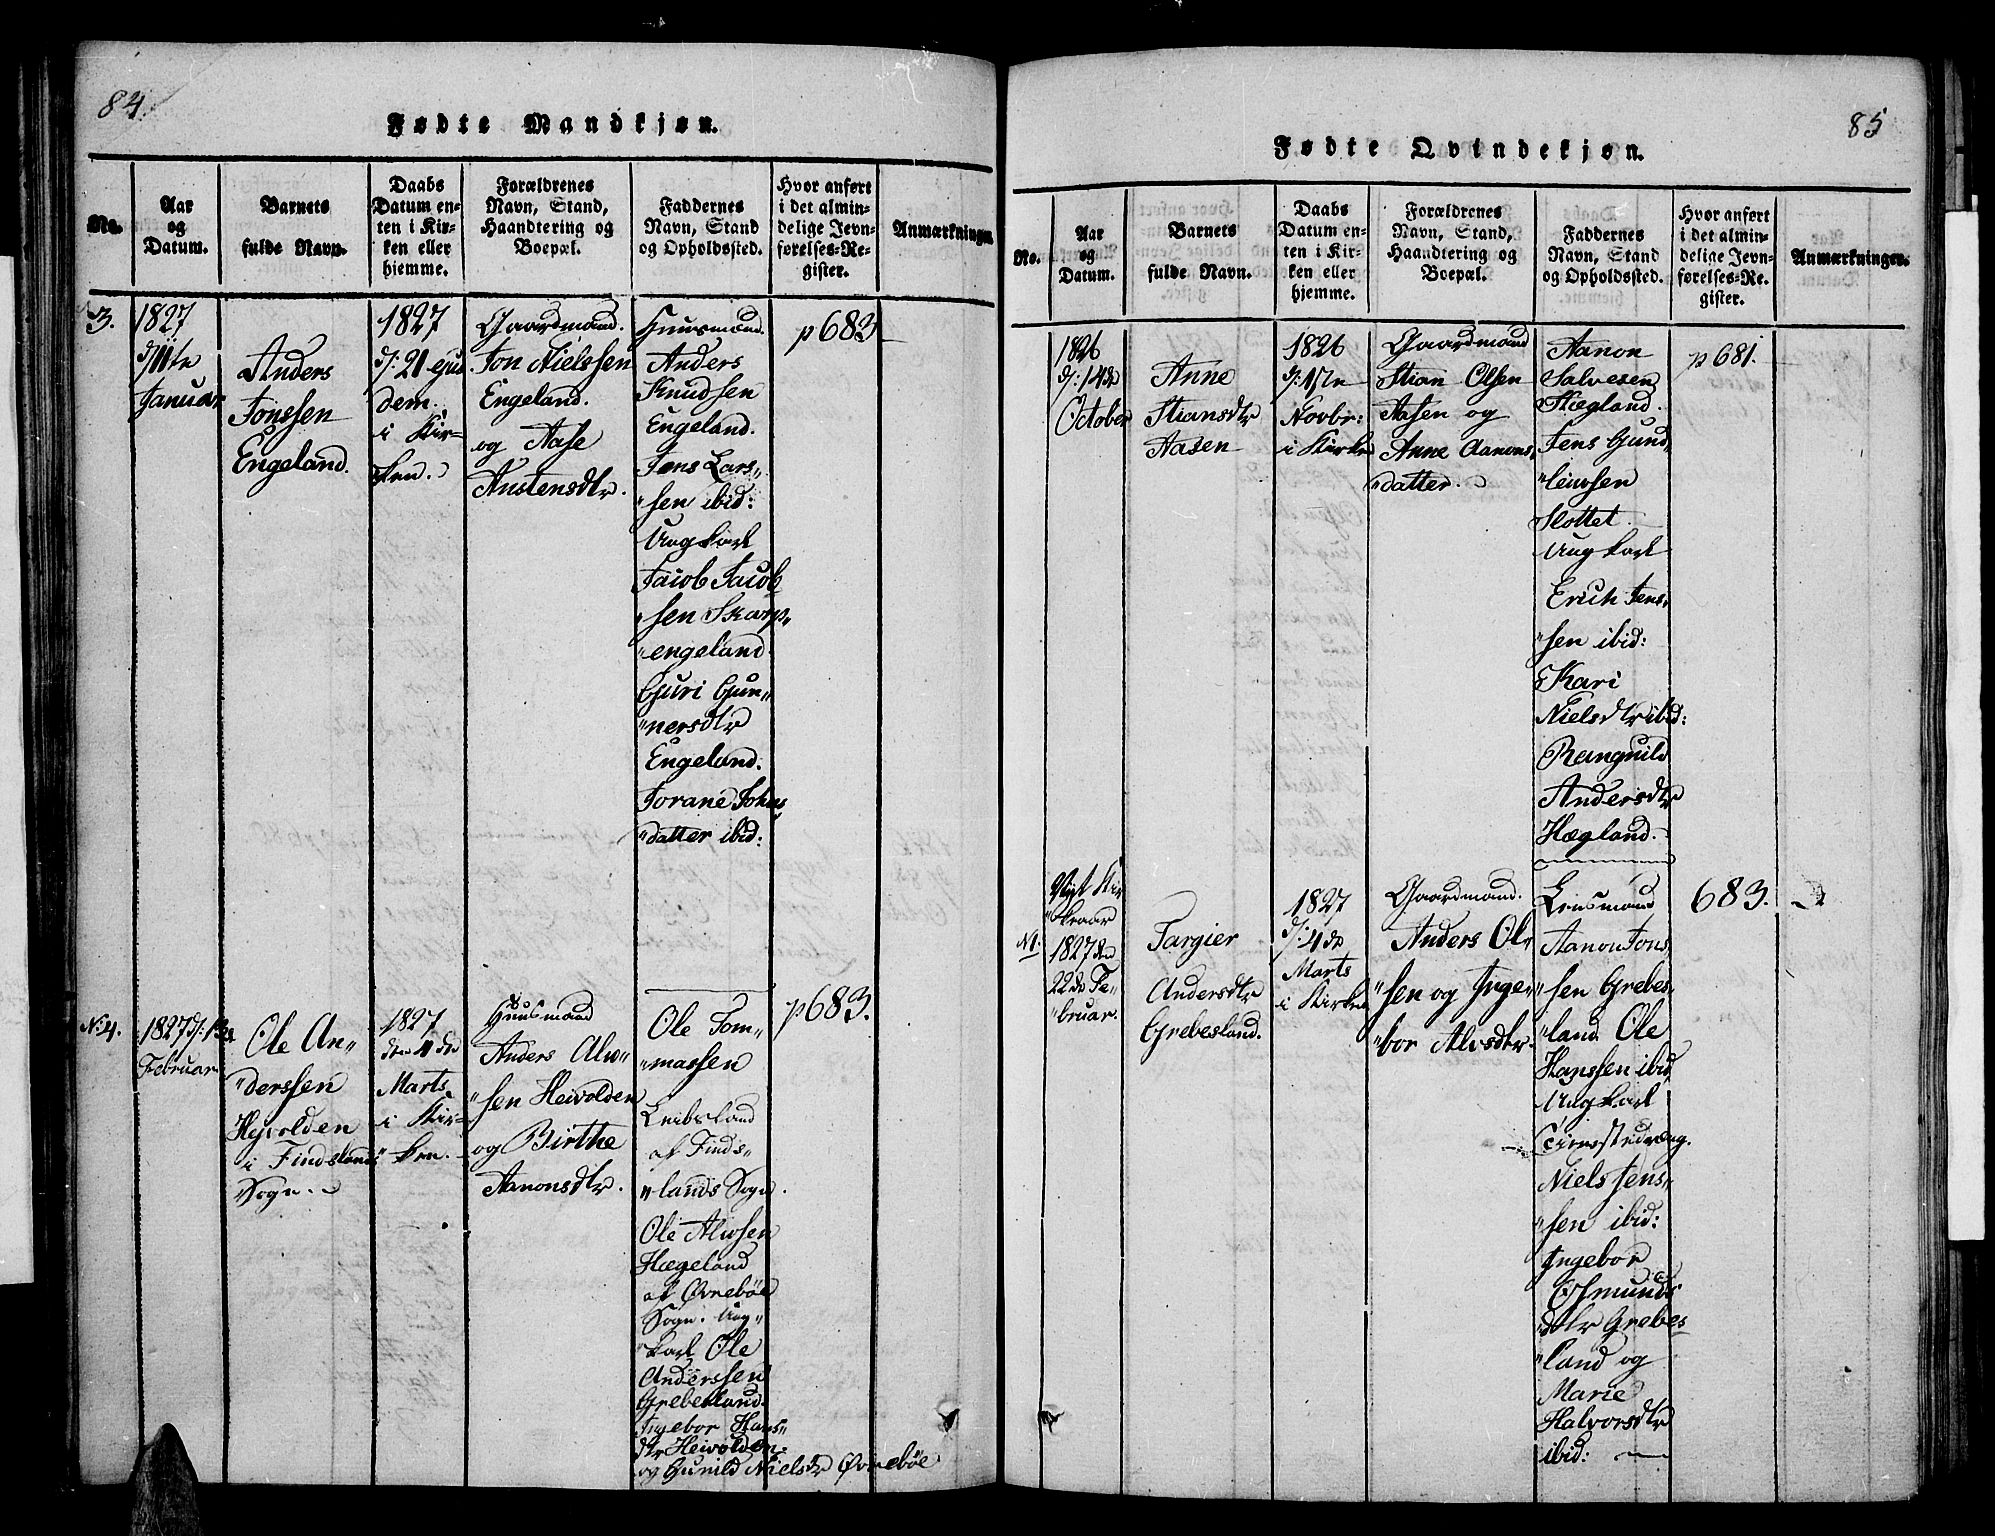 84.
Fødte Mandkjøn.
No.
Aar
og
Datum.
Barnets
fulde Navn.
Daabs
Datum en-
ten i Kir-
ken eller
hjemme.
Forældrenes
Navn, Stand,
Haandtering og
Boepæl.
Faddernes
Navn, Stand
og Opholdssted.
Hvor anført
i det almin-
delige Jevn-
førelses-Re-
gister.
Anmærkninger.
3.
1827
d: 11te
Januar
Anders
Jonssen
Engeland.
1827
d: 21 ejus
dem.
i Kir-
ken.
Gaardmand.
Jon Nielssen
Engeland.
og Aase
Austensdtr.
Huusmænd.
Anders
Knudsen
Engeland.
Jens Lars„
„sen ibid:
Ungkarl
Jaiob Jacob
„sen Skarp„
„engeland
Guri Gun„
„nersdtr
Engeland.
Jorane Johns
„datter ibid:
p 683
No: 4.
1827 d: 13de
Februar
Ole An„
„derssen
Hejvolden
i Findslands
Sogn.
1827
den 4de
Marts
i Kir-
ken.
Huusmand
Anders Alv„
„sen Heivolden
og Birthe
Aanonsdtr.
Ole Tom„
„massen
Leibsland
af Finds„
„lands Sogn.
Ole Alvsen
Hægeland
af Øvrebøe
Sogn. Ung„
„karl Ole
Anderssen
Grebesland.
Ingebor Hans„
dtr Heivolden.
og Gunild Nielsdtr Øvrebøe
p 683.
85
Fødte Qvindekjøn.
No.
Aar
og
Datum.
Barnets
fulde Navn.
Daabs
Datum en-
ten i Kir-
ken eller
hjemme.
Forældrenes
Navn, Stand,
Haandtering og
Boepæl.
Faddernes
Navn, Stand
og Opholdssted.
Hvor anført
i det almin-
delige Jevn-
førelses-Re-
gister.
Anmærkninger.
1826
d: 14de
October
Anne
Stiansdtr
Aasen
1826
d: 17n
Novbr:
i Kirken
Gaardmand
Stian Olsen
Aasen og
Anne Aanons„
„datter.
Aanon
Salvesen
Hægland.
Jens Gund„
„leivsen
Slottet
Ungkarl
Erich Jens„
„sen ibid:
Kari
Nielsdtr ibid:
Rangnild
Andersdtr
Hægland.
p 681.
N1.
Nyt Kir
„keaar
1827 den
22de Fe„
„bruar.
Targier
Andersdtr
Grebesland.
1827
d: 4de
Marts
i Kirken
Gaardmand.
Anders Ol„
„sen og Inge„
„bor Alvsdtr.
Lensmand
Aanon Jons„
„sen Grebes„
„land Ole
Hanssen ibid
Ungkarl
Niels Jens„
„sen ibid:
Ingebor
Osmunds
dtr Grebes„
„land og
Marie
Halvorsdtr
ibid:
683.